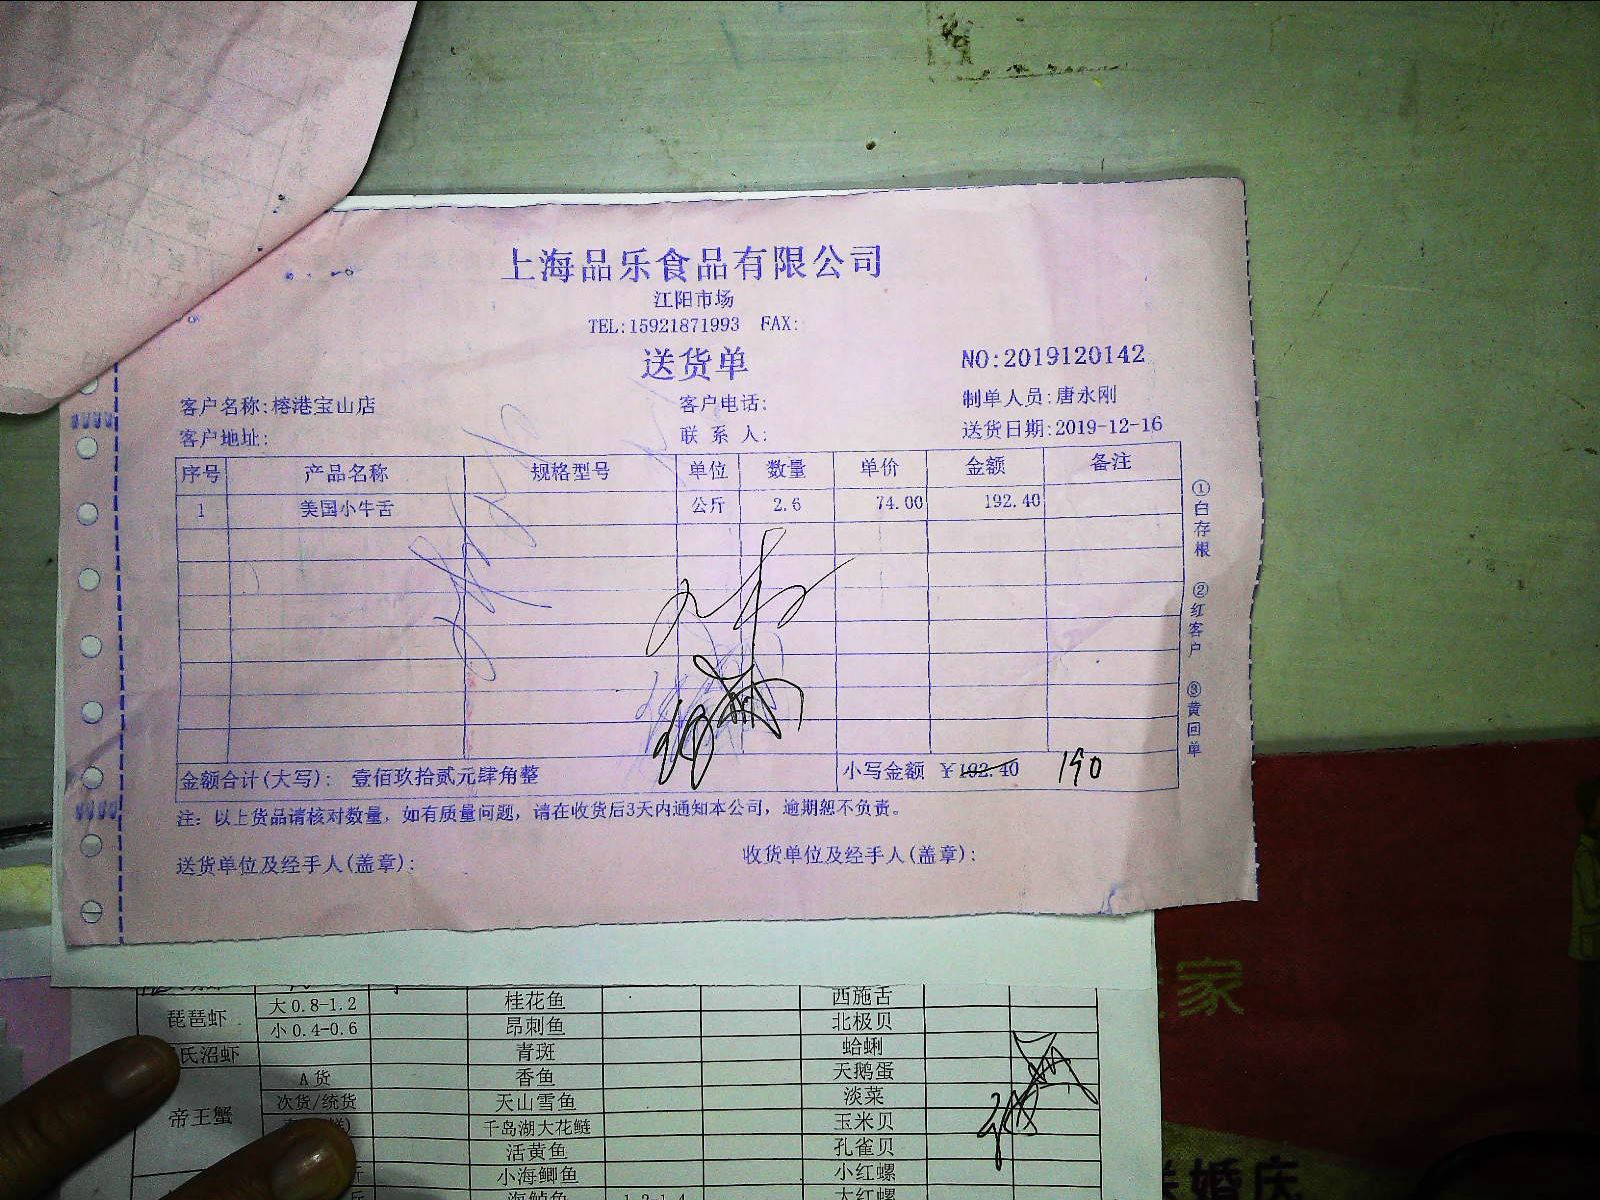 上海品乐食品有限公司
江阳市场
TEL:15921871993 FAX:
送货单
NO:2019120142
客户名称:榕港宝山店 客户电话: 制单人员:唐永刚
客户地址: 联系人: 送货日期:2019-12-16
序号 产品名称 规格型号 单位 数量 单价 金额 备注
1 美国小牛舌 公斤 2.6 74.00 192.40
金额合计(大写): 壹佰玖拾贰元肆角整 小写金额 ¥192.40 190
注: 以上货品请核对数量, 如有质量问题, 请在收货后3天内通知本公司, 逾期恕不负责。
送货单位及经手人(盖章): 收货单位及经手人(盖章):
①白存根 ②红客户 ③黄回单
琵琶虾 大0.8-1.2 桂花鱼 西施舌
小0.4-0.6 昂刺鱼 北极贝
氏沼虾 青斑 蛤蜊
帝王蟹 A货 香鱼 天鹅蛋
次货/统货 天山雪鱼 淡菜
千岛湖大花鲢 玉米贝
活黄鱼 孔雀贝
小海鲫鱼 小红螺
海鲈鱼 1.2-1.4 大红螺
家
婚庆